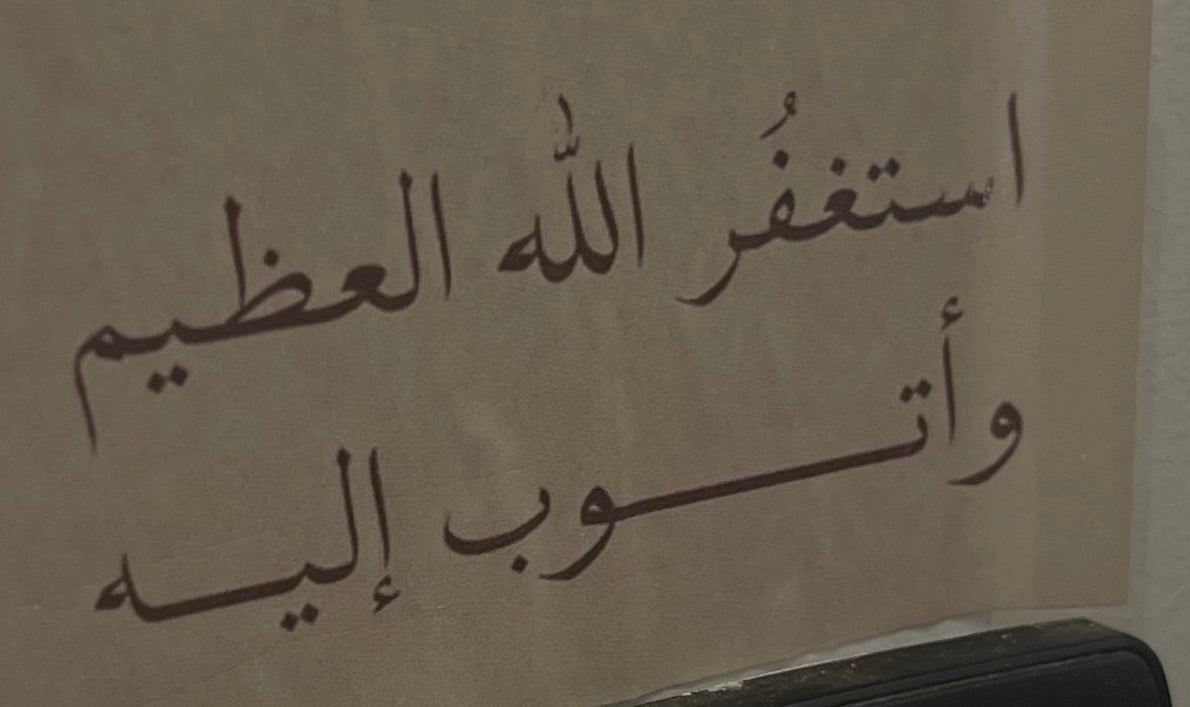 استغفُر الله العظيم
وأتـــوب إليـــه